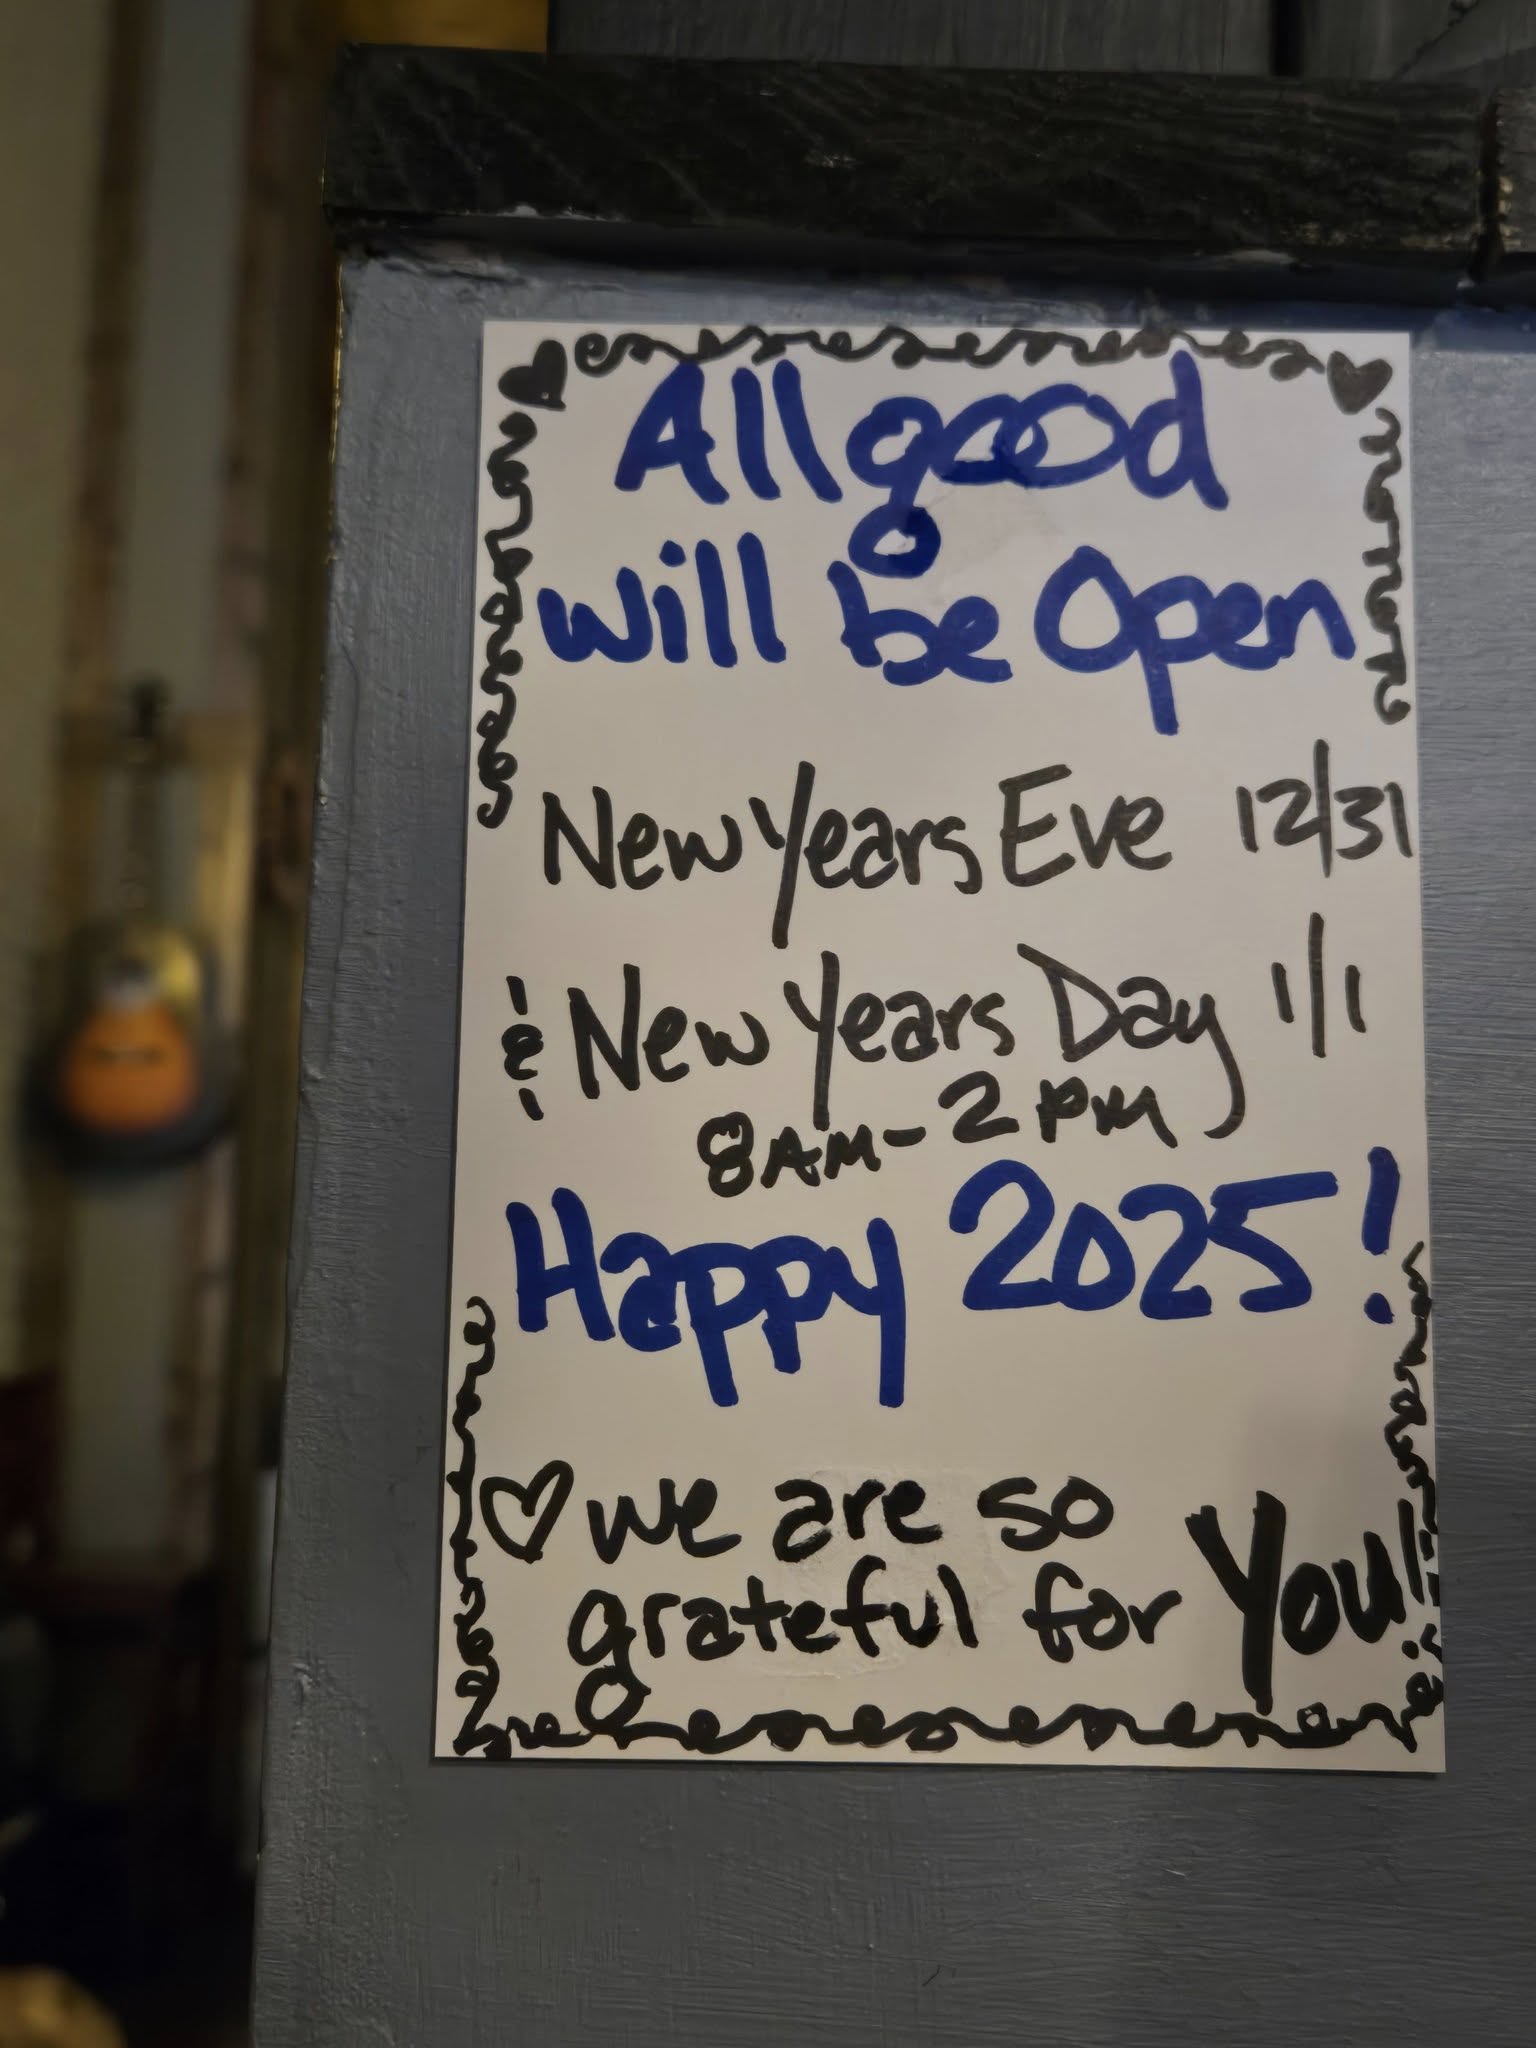 Allgood
will be Open
New Years Eve 12/31
& New Years Day 1/1
8AM-2PM
Happy 2025!
♡ we are so
grateful for You!!